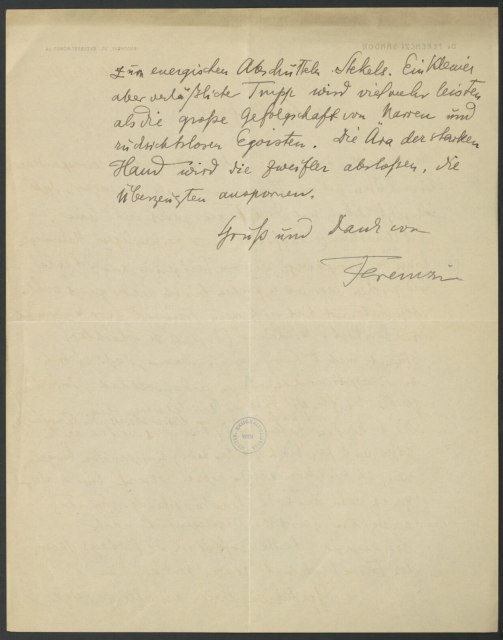 zum energischen Abschütteln Stekels. Ein kleiner
aber verläßliche Trupp wird vielmehr leisten
als die große Gefolgschaft von Narren und
rücksichtslosen Egoisten. Die Ära der starken
Hand wird die Zweifler abstoßen, die
Überzeugten anspornen.
Gruß und Dank von
Ferenczi